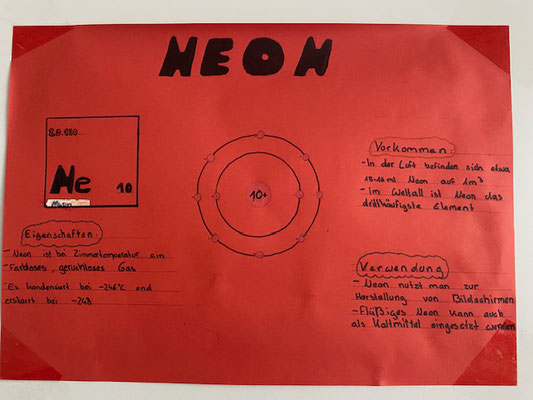 NEON
20.180...
Ne 10
10+
Vorkommen:
- In der Luft befinden sich etwa
18.18 ml Neon auf 1m³
- Im Weltall ist Neon das
dritthäufigste Element
Eigenschaften:
- Neon ist bei Zimmertemperatur ein
- Farbloses, geruchloses Gas
- Es kondensiert bei -246°C und
erstarrt bei -248
Verwendung
- Neon nutzt man zur
Herstellung von Bildschirmen
- Flüßiges Neon kann auch
als Kältmittel eingesetzt werden